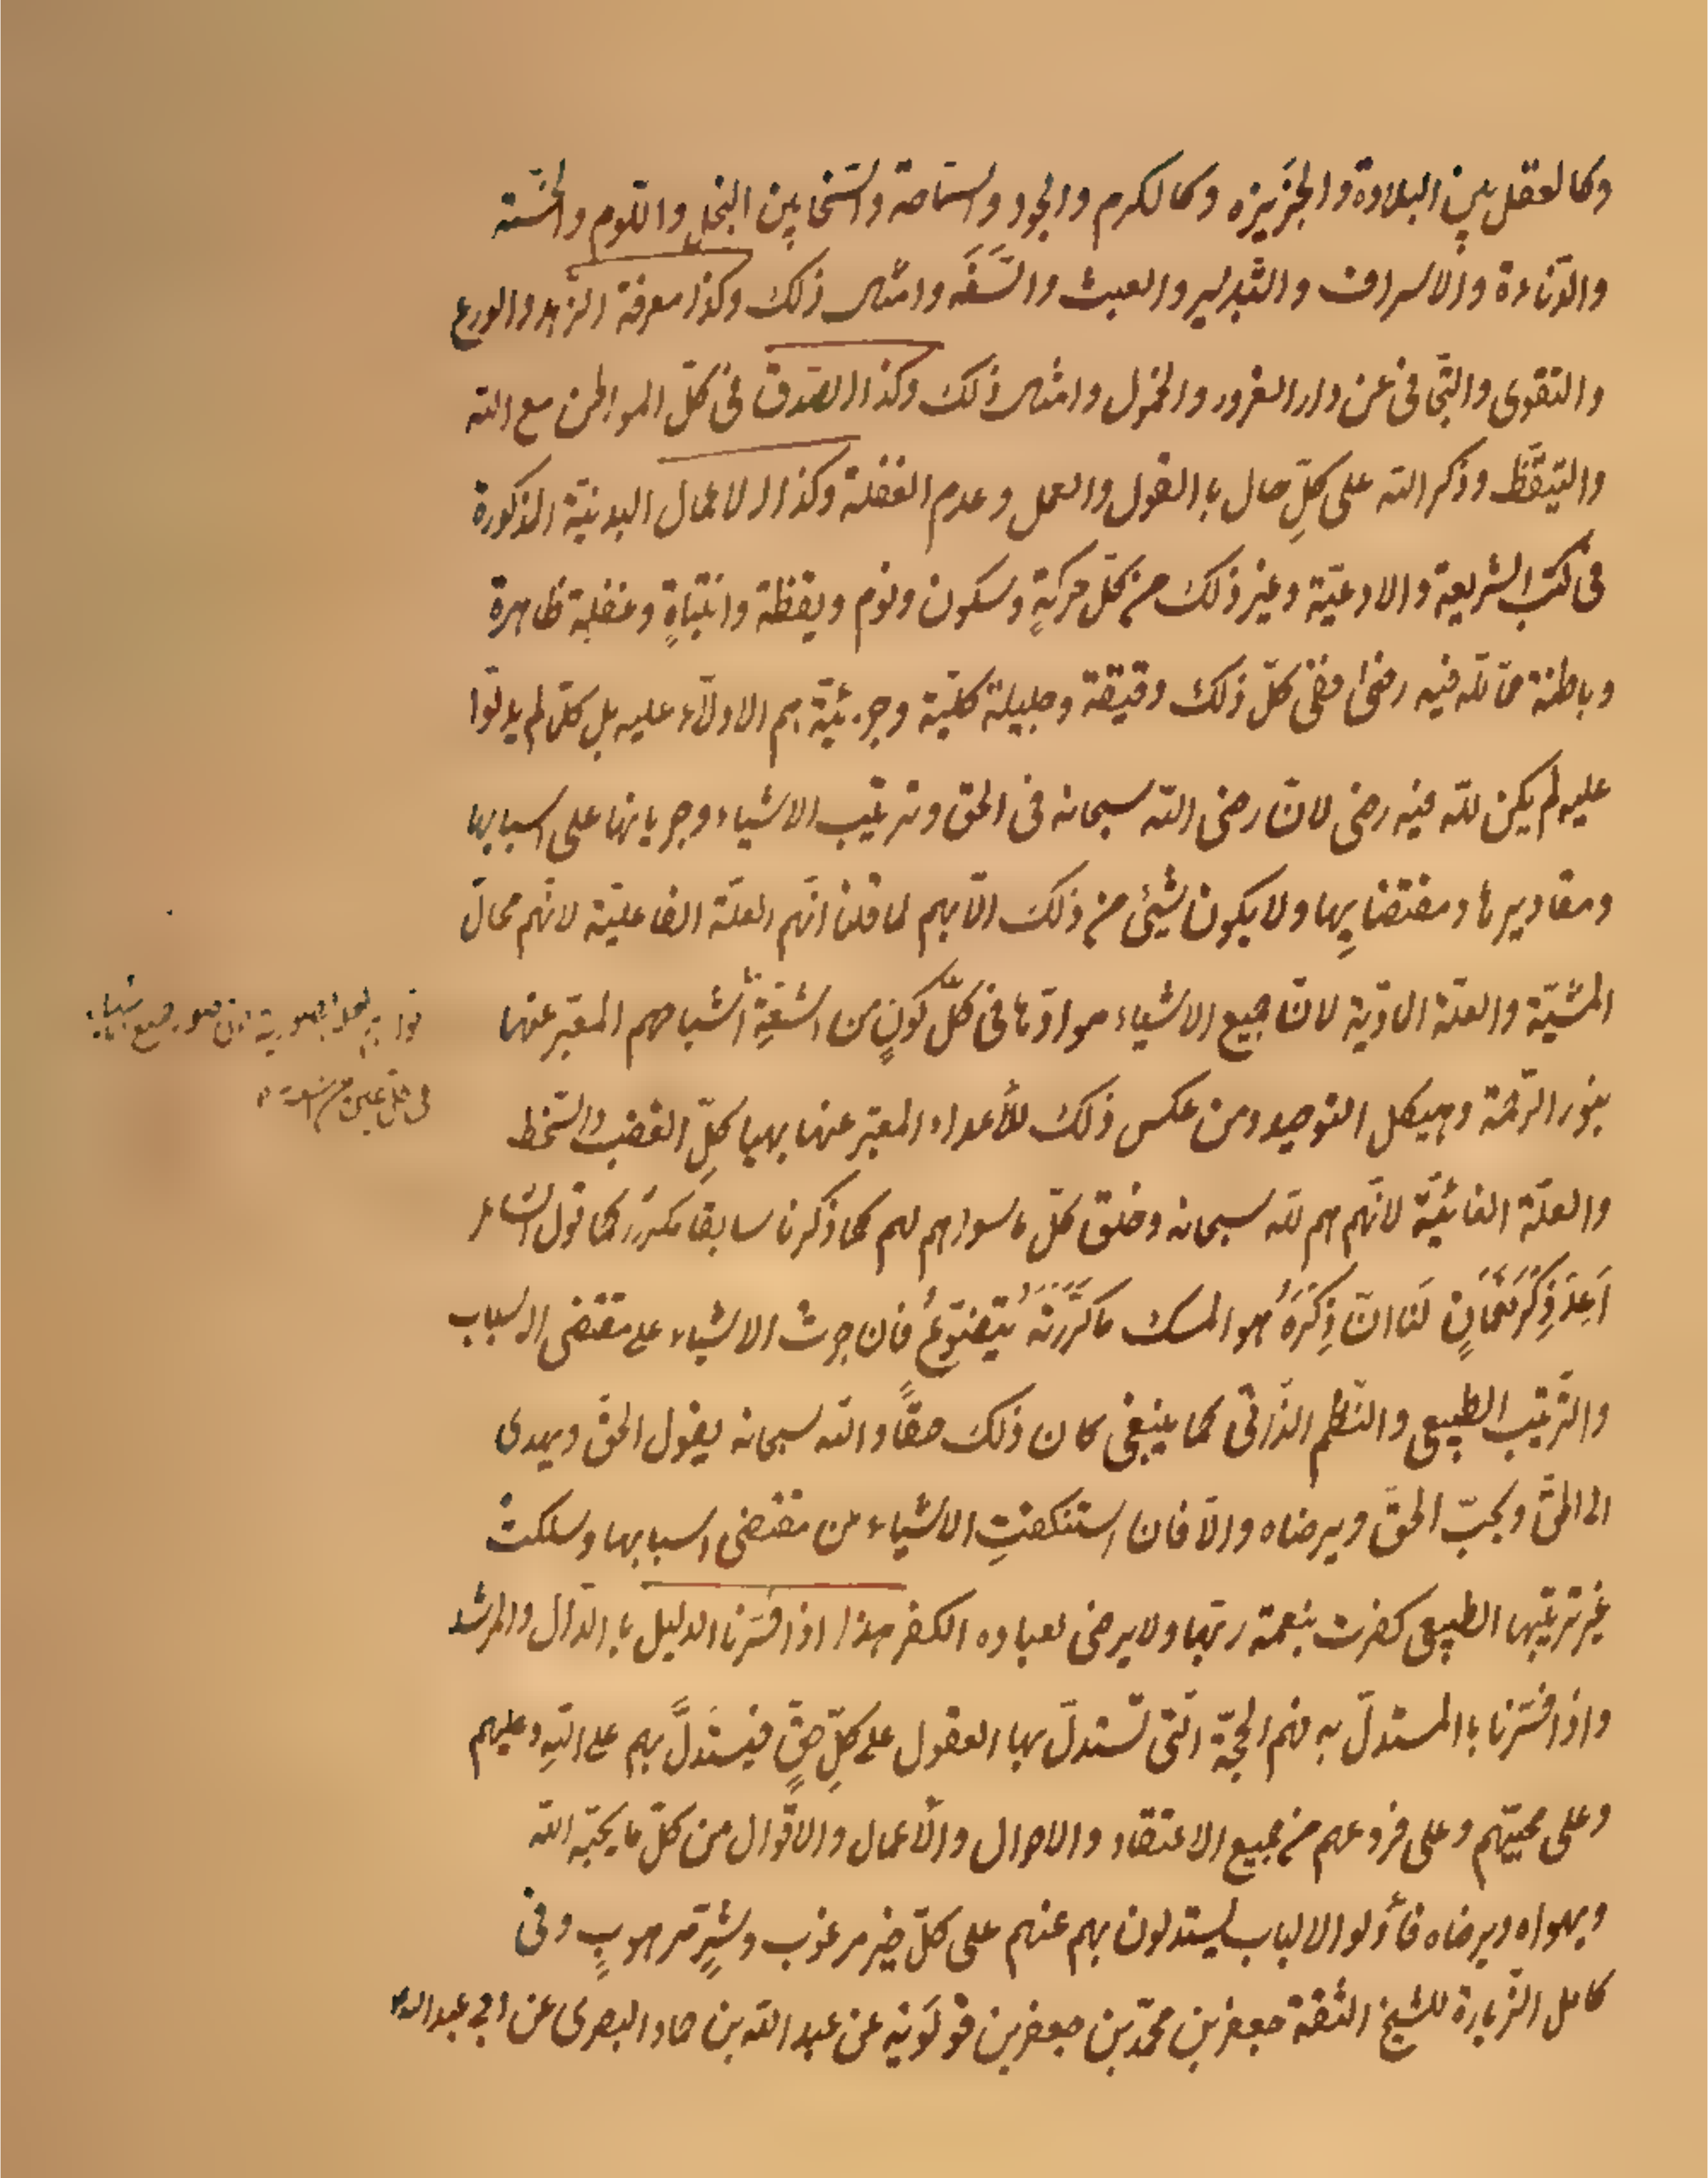 وكالعقل بين البلادة والجَرْبَزه وكالكرم والجود والسّماحة والسّخا بين البخل واللّوم والخسّة
والدّناءة والاسراف والتّبذير والعبث والسَّفَه وامثال ذلك وكذا معرفة الزّهد والورع
والتقوى والتّجافى عن دار الغرور والخمول وامثال ذلك وكذا الصّدق فى كلّ المواطن مع الله
والتّيقّظ وذكر الله على كلِّ حال باالقول والعمل وعدم الغفلة وكذا الاعمال البدنيّة المذكورة
فى كتب الشريعة والادعيّة وغير ذلك من كلّ حركةٍ وسكون ونوم ويقظة وانتباةٍ وغفلة ظاهرة
وباطنة ممّا لله فيه رضىً ففى كلّ ذلك دقيقة وجليلة كليّة وجزئيّة هم الادلّاء عليه بل كلّ لم يدلّوا
عليه لم يكن لله فيه رضى لانّ رضى الله سبحانه فى الحق وترتيب الاشياء وجريانها على اسبابها
ومقاديرها ومقتضايِها ولا يكون شيئ من ذلك الّا بهم لما قلنا انّهم العلّة الفاعليّة لانّهم محالّ
المشيّة والعلّة المادّية لانّ جميع الاشياء موادّها فى كلّ كونٍ من اشعّةِ أشباحهم المعبّر عنها
بنور الرّحمة وهيكل التوحيد ومن عكس ذلك للأعداء المعبّر عنها بهياكلِ الغضب والسّخط
والعلّة الغائيّة لانّهم هم لله سبحانه وخلق كلّ ما سواهم لهم كما ذكرنا سابقا مكرّرا كما قول الشاعر
اَعِدْ ذِكْرَ نُعْمَانٍ لَنَا انّ ذِكْرَهُ هو المسك ما كَرَّرْتَهُ يَتَضَوَّعُ فان جرت الاشياء على مقتضى الاسباب
والتّرتيب الطبيعى والنّظم الذّاتى كما ينبغى كان ذلك حقًّا والله سبحانه يقول الحقّ ويهدى
الى الحقّ ويحبّ الحقّ ويرضاه والّا فان استنكفتِ الاشياء من مقتضى اسبابها وسلكت
غير ترتيبها الطبيعى كفرت بنعمة ربّها ولا يرضى لعباده الكفر هذا اذا فسّرنا الدليل با الدّال والمرشد
واذا فسّرنا باالمستدلّ به فهم الحجّة الّتى تستدلّ بها العقول على كلِّ حقٍّ فيستَدلَّ بهم على اللهِ وعليهم
وعلى محبّيهم وعلى فروعهم من جميع الاعتقاد والاحوال والأعمال والاقوال من كلّ ما يحبّه الله
ويهواه ويرضاه فأولوا الالباب يستدلون بهم عنهم على كلّ خير مرغوب وشرٍّ مرهوبٍ وفى
كامل الزّيارة للشيخ الثقة جعفر بن محمّد بن جعفر بن قولَويه عن عبد الله بن حماد البصرى عن ابى عبد الله